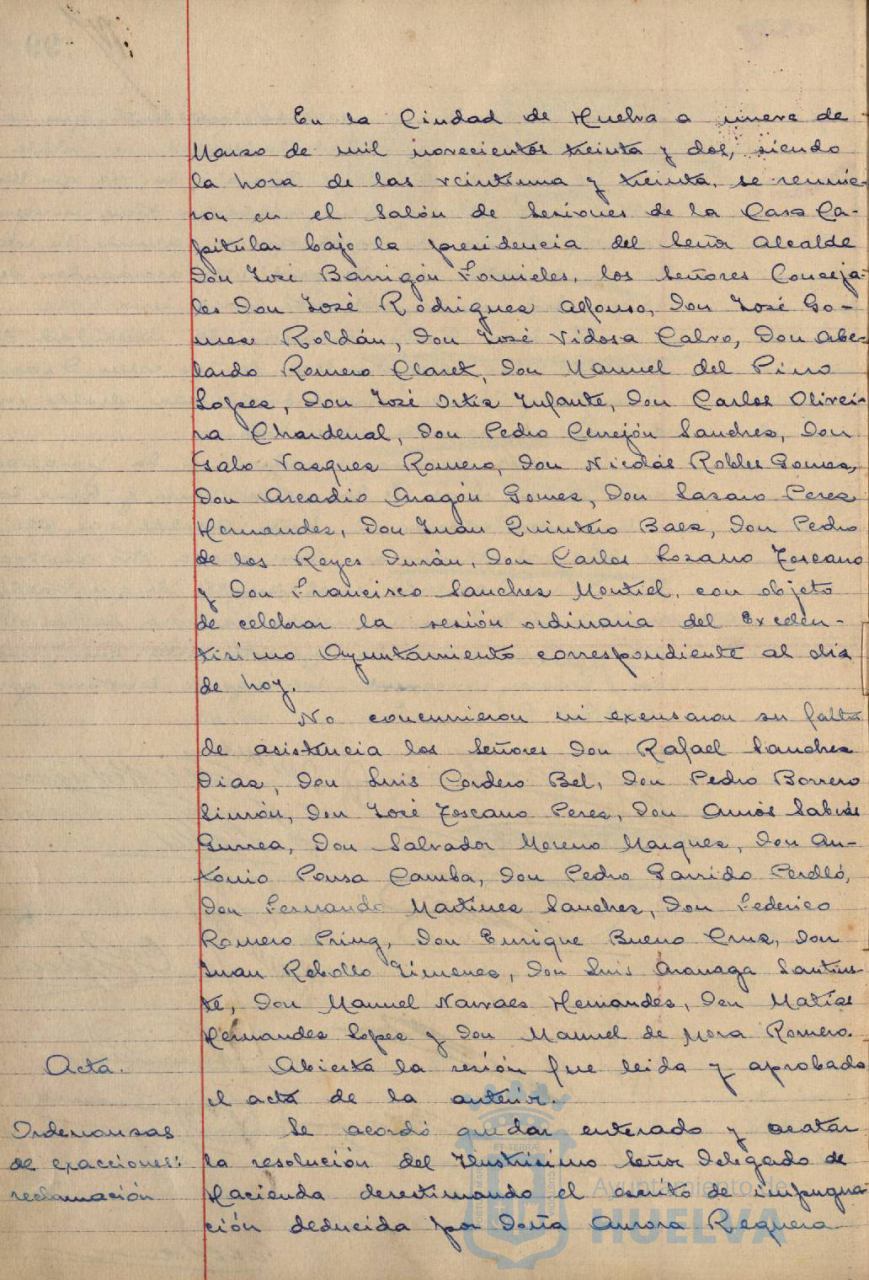 En la Ciudad de Huelva a nueve de
Marzo de mil novecientos treinta y dos, siendo
la hora de las veintiuna y treinta, se reunie-
ron en el Salón de Sesiones de la Casa Ca-
pitular bajo la presidencia del Señor Alcalde
Don José Barrigón Fornieles, los Señores Conceja-
les Don José Rodriguez Alfonso, Don José Go-
mez Roldán, Don José Vidosa Calvo, Don Abe-
lardo Romero Claret, Don Manuel del Pino
Lopez, Don José Ortiz Infante, Don Carlos Olivei-
ra Chardenal, Don Pedro Cerrejón Sanchez, Don
Galo Vazquez Romero, Don Nicolás Robles Gomez,
Don Arcadio Aragón Gomez, Don Lazaro Perez
Hernandez, Don Juan Quintero Baez, Don Pedro
de los Reyes Durán, Don Carlos Lozano Toscano
y Don Francisco Sanchez Montiel, con objeto
de celebrar la sesión ordinaria del Excelen-
tisimo Ayuntamiento correspondiente al dia
de hoy.
No concurrieron ni excusaron su falta
de asistencia los Señores Don Rafael Sanchez
Diaz, Don Luis Cordero Bel, Don Pedro Borrero
Limón, Don José Toscano Perez, Don Amós Sabrás
Gurrea, Don Salvador Moreno Marquez, Don An-
tonio Pousa Camba, Don Pedro Garrido Perelló,
Don Fernando Martinez Sanchez, Don Federico
Romero Pring, Don Enrique Bueno Cruz, Don
Juan Rebollo Jimenez, Don Luis Aranaga Santius-
te, Don Manuel Narvaez Hernandez, Don Matías
Hernandez Lopez y Don Manuel de Mora Romero.
Acta.
Abierta la sesión fue leida y aprobada
el acta de la anterior.
Ordenanzas
de exacciones:
reclamación
Se acordó quedar enterado y acatar
la resolución del Ilustrisimo Señor Delegado de
Hacienda desestimando el escrito de impugna-
ción deducida por Doña Aurora Requera
Ayuntamiento de
HUELVA